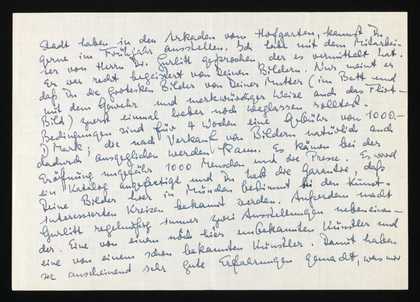 Stadt haben in den Arkaden vom Hofgarten, kannst Du
gerne im Frühjahr ausstellen. Ich habe mit dem Mitarbei-
ter von Herrn Dr. Gurlitt gesprochen der es vermittelt hat.
Er war recht begeistert von Deinen Bildern. Nur meint er
daß Du die grotesken Bilder von Deiner Mutter (im Bett und
mit dem Gewehr und merkwürdiger Weise auch das Flirt-
Bild) zuerst einmal lieber noch weglassen solltest.
Bedingungen sind für 4 Wochen eine Gebühr von 1000.-
D Mark, die nach Verkauf von Bildern natürlich auch
dadurch ausgeglichen werden kann. Es kämen bei der
Eröffnung ungefähr 1000 Menschen und die Presse. Es wird
ein Katalog angefertigt und Du hast die Garantie, daß
Deine Bilder hier in München bestimmt bei den Kunst-
interessierten Kreisen bekannt werden. Außerdem macht
Gurlitt regelmäßig immer zwei Ausstellungen nebeneinan-
der. Eine von einem noch hier unbekannten Künstler und
eine von einem schon bekannten Künstler. Damit haben
sie anscheinend sehr gute Erfahrungen gemacht, was mir